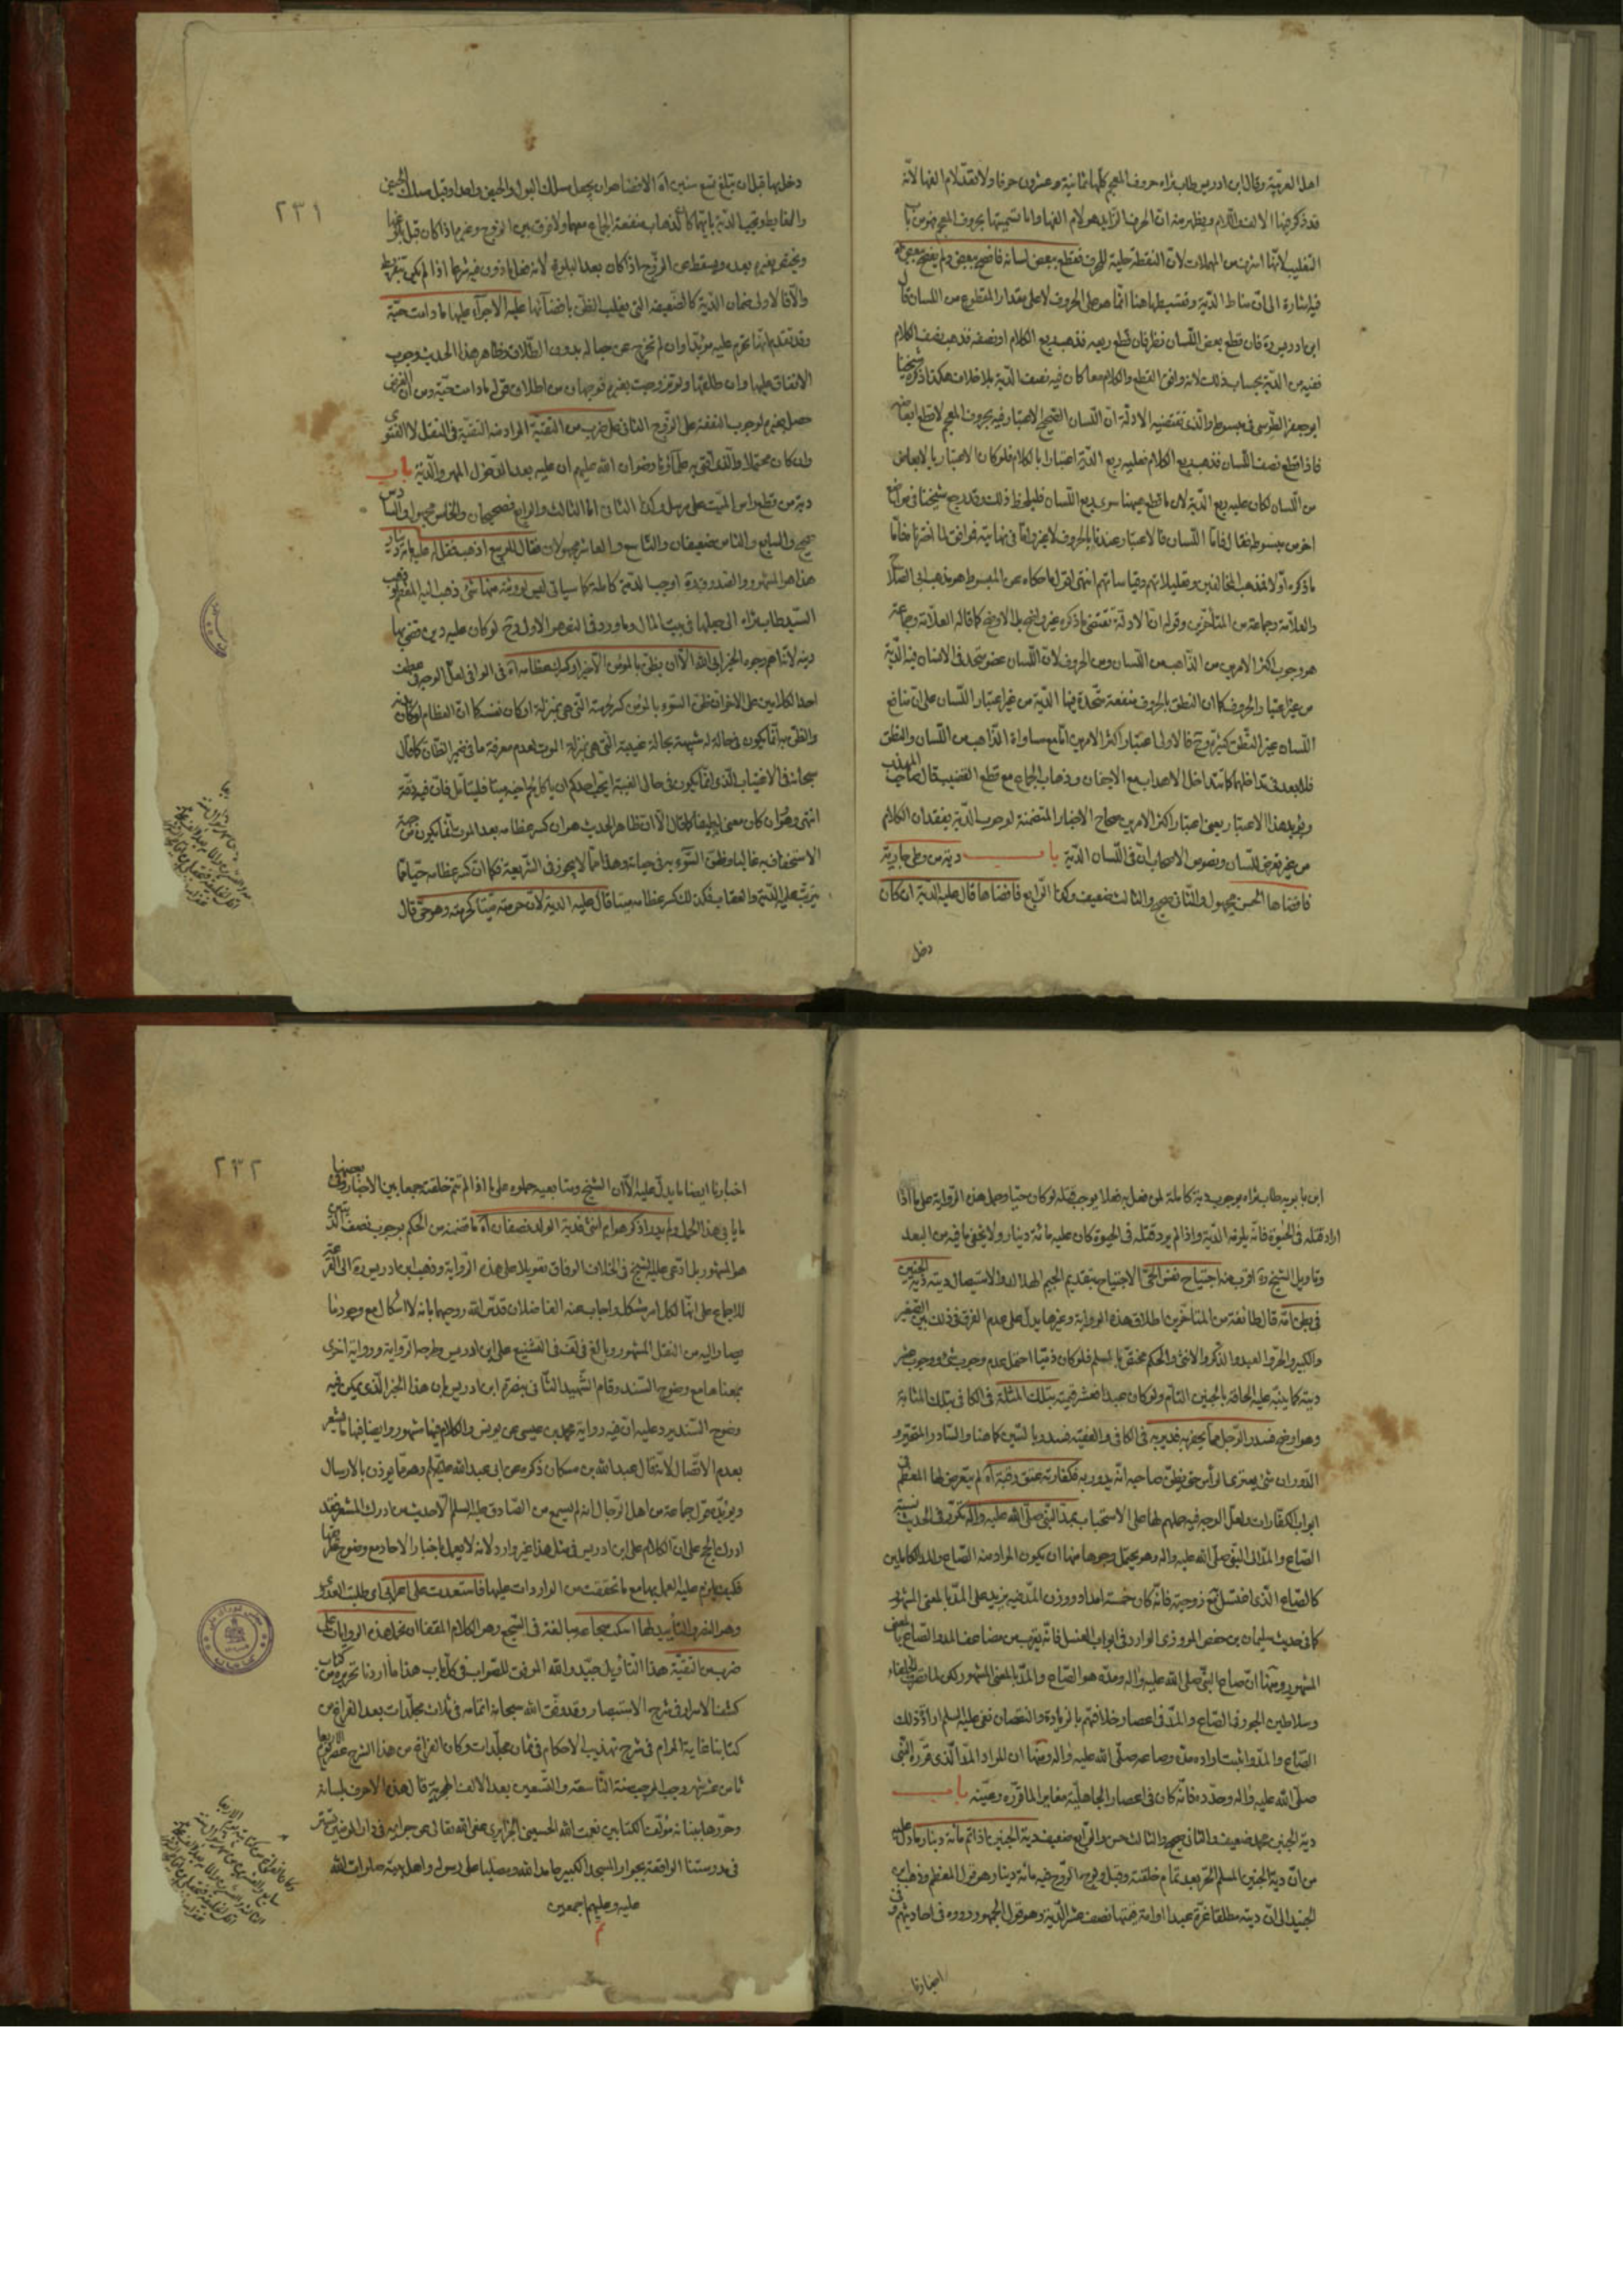 اهل العربيّة وقال ابن ادريس طاب ثراه حروف المعجم كلّها ثمانية وعشرون حرفا ولا تعدّ لام الفها لانّه
قد ذكر فيها الالف واللام ويظهر منه انّ الحرف الزايد هو لام الفها واما تسميتها بحروف المعجم فهو من باب
التغليب لانها اشرف من المهملات لانّ النقطة حلية للحرف فقطع بعض لسانه فافصح ببعض ولم يفصح ببعض
فيه اشارة الى انّ مناط الدّية وتقسيطها هنا انّما هو على الحروف لا على مقدار المقطوع من اللسان قال
ابن ادريس ره فان قطع بعض اللسان نظر فان قطع ربعه فذهب ربع الكلام او نصفه فذهب نصف الكلام
ففيه من الدّية بحساب ذلك لانه وافق القطع والكلام معا كان فيه نصف الدّية بلا خلاف هكذا ذكره شيخنا
ابو جعفر الطّوسى فى مبسوطه والّذى تقتضيه الادلّة انّ اللسان الصّحيح الاعتبار فيه بحروف المعجم لا قطع ابعاضه
فاذا قطع نصف اللسان فذهب ربع الكلام فعليه ربع الدّية اعتبارا بالكلام فلو كان الاعتبار بالابعاض
من اللسان لكان عليه ربع الدّية لان ما قطع هيهنا سوى ربع اللسان فليلحظ ذلك وقد رجع شيخنا فى مواضع
اخر من مبسوطه فقال فامّا اللسان فالاعتبار عندنا بالحروف لا غير وامّا فى نهايته فموافق لما اخترناه فامّا
ما ذكره اوّلا فمذهب المخالفين وتعليلاتهم وقياساتهم انتهى اقول ما حكاه عن المبسوط هو مذهب ابى الصّلاح
والعلّامة وجماعة من المتاخّرين وقوله انّ الادلّة تقتضى ما ذكره غير واضح بل الاوضح كما قاله العلّامة وجماعة
هو وجوب اكثر الامرين من الذّاهب من اللسان ومن الحروف لانّ اللسان عضو متّحد فى الانسان فيه الدّية
من غير اعتبار الحروف كما ان النطق بالحروف منفعة متّحدة فيها الدّية من غير اعتبار اللّسان على انّ منافع
اللّسان غير النّطق كثيرة وح فالاولى اعتبار اكثر الامرين امّا مع مساواة الذّاهب من اللسان والنطق
فلا بعد فى تداخلهما كما تتداخل الاهداب مع الاجفان وذهاب الجماع مع قطع القضيب قال صاحب المهذب
ويؤيد هذا الاعتبار يعنى اعتبار اكثر الامرين صحاح الاخبار المتضمنة لوجوب الدّية بفقدان الكلام
من غير تعرض للّسان ونصوص الاصحاب انّ فى اللسان الدّية باب دية من وطى جارية
فافضاها الحسن مجهول والثانى صحيح والثالث ضعيف وكذا الرابع فافضاها قال عليه الدّية ان كان
دخل
٢٣١
دخل بها قبل ان تبلغ تسع سنين آه الافضاء هو ان يجعل مسلك البول والحيض واحدا وقيل مسلك الحيض
والغايط وتجب الدّية بايّهما كان لذهاب منفعة الجماع معهما ولا فرق بين الزوج وغيره اذا كان قبل بلوغها
ويختص بغيره بعده ويسقط عن الزّوج اذا كان بعد البلوغ لانه فعل ماذون فيه شرعا اذا لم يكن بتفريط
والّا فالاولى ضمان الدّية كالضعيفة التى يغلب الظن بافضائها عليه الاجراء عليها ما دامت حيّة
وقد تقدم انها تحرم عليه مؤبدا وان لم تخرج عن حباله بدون الطّلاق وظاهر هذا الحديث وجوب
الانفاق عليها وان طلقها ولو تزوجت بغيره فوجهان من اطلاق قوله ما دامت حيّة ومن ان الغرض
حصل بغيره لوجوب النفقة على الزّوج الثانى على ضرب من التقيّة المراد منه التقيّة فى النقل لا الفتوى
وان كان محتملا والّذى افتى به علماؤنا رضوان الله عليهم ان عليه بعد الدّخول المهر والدّية باب
دية من قطع راس الميّت على مرسل وكذا الثانى امّا الثالث والرابع فصحيحان والخامس مجهول والسادس
صحيح والسابع والثامن ضعيفان والتاسع والعاشر مجهولان فقال للربيع اذهب فقل له عليه مائة دينار
هذا هو المشهور والصدوق ره اوجب الدية كاملة كما سياتى ليس لورثته منها شئ ذهب اليه المعظم وذهب
السّيد طاب ثراه الى جعلها فى بيت المال وما ورد فى النص هو الاول وح لو كان عليه دين قضى بها
دينه لانه اهم وجوه الخير ابى الله الّا ان يظنّ بالمؤمن الّا خيرا وكسرك عظامه آه فى الوافى لعلّ الوجه فى عطف
احد الكلامين على الاخر انّ ظنّ السّوء بالمؤمن كسر لحرمته الّتى هى بمنزلة اركان نفسه كما انّ العظام اركان بدنه
والظنّ به انّما يكون فى حالة له شبيهة بحالة غيبته الّتى هى بمنزلة الموت لعدم معرفة ما فى ضمير الظان كما قال
سبحانه فى الاغتياب الّذى انّما يكون فى حال الغيبة ايحب احدكم ان ياكل لحم اخيه ميتا فليتأمّل فانّ فيه دقّة
انتهى وهو وان كان معنى لطيفا كما قال الّا ان ظاهر الحديث هو ان كسر عظامه بعد الموت انّما يكون من جهة
الاستخفاف به غالبا وظنّ السّوء به فى حياته وهذا ممّا لا يجوز فى الشّريعة فكما انّ كسر عظامه حيّا ممّا
يترتّب عليه الدّية والعقاب فكذلك كسر عظامه ميتا قال عليه الدية لانّ حرمته ميتا كحرمته وهو حىّ قال
ابن بابويه طاب ثراه بوجوب دية كاملة لمن فعل به فعلا يوجب قتله لو كان حيا وحمل هذه الرّواية على ما اذا
اراد قتله فى الحيٰوة فانّه يلزمه الدّية واذا لم يرد قتله فى الحيٰوة كان عليه مائة دينار ولا يخفى ما فيه من البعد
وتاويل الشيخ ره اقرب منه اجتياح نفس الحىّ الاجتياح بتقديم الجيم الهلاك والاستيصال ديته دية الجنين
فى بطن امّه قال طائفة من المتاخّرين اطلاق هذه الرواية وغيرها يدلّ على عدم الفرق فى ذلك بين الصّغير
والكبير والحرّ والعبد والذّكر والانثى والحكم مختصّ بالمسلم فلو كان ذمّيا احتمل عدم وجوب شئ ووجوب عشر
ديته كما ينبّه عليه الحاقه بالجنين التام ولو كان عبدا فعشر قيمته بتلك المثلة فى الكافى بتلك المثابة
وهو اوضح فسدر الرّجل مما يحفر به بئره فى الكافى والفقيه فسدد بالسّين كما هنا والسّادر المتحيّر و
الدّوران شئ يعترى الرأس حتى يظنّ صاحبه انّه يدور به فكفارته عتق رقبة آه لم يتعرض لها المعظم فى
ابواب الكفارات ولعلّ الوجه فيه حملهم لها على الاستحباب بمدّ النّبى صلّى الله عليه وآله تكرّر فى الحديث نسبة
الصّاع والمدّ الى النبى صلّى الله عليه واله وهو يحتمل وجوها منها ان يكون المراد منه الصّاع والمدّ الكاملين
كالصّاع الّذى اغتسل به مع زوجته فانّه كان خمسة امداد ووزن المدّ فيه يزيد على المدّ بالمعنى المشهور
كما فى حديث سليمان بن حفص المروزى الوارد فى ابواب الغسل فانّه يقرب من مضاعف المد والصّاع بالمعنى
المشهور ومنها انّ صاع النبى صلى الله عليه واله ومدّه هو الصّاع والمدّ بالمعنى المشهور لكن لما تصرف الخلفاء
وسلاطين الجور فى الصّاع والمدّ فى اعصار خلافتهم بالزيادة والنقصان نفى عليه السلم ارادة ذلك
الصّاع والمدّ واثبت ارادة مدّه وصاعه صلّى الله عليه واله ومنها ان المراد المدّ الّذى قرّره النّبى
صلّى الله عليه واله وحدّده فانّه كان فى اعصار الجاهليّة مغايرا لما قرّره وعيّنه باب
دية الجنين عهد ضعيف والثانى صحيح والثالث حسن والرّابع ضعيف دية الجنين اذا تم مائة دينار ما دلّ عليه
من انّ دية الجنين المسلم الحرّ بعد تمام خلقته وقبل ولوج الرّوح فيه مائة دينار وهو قول المعظم وذهب ابن
الجنيد الى انّ ديته مطلقا غرّة عبد او امة قيمتها نصف عشر الدّية وهو قول الجمهور ورووه فى احاديثهم وفى
اخبارنا
٢٣٢
اخبارنا ايضا ما يدلّ عليه الّا ان الشيخ ومتابعيه حملوه على ما اذا لم تتم خلقته جمعا بين الاخبار وفى بعضها
ما يابى هذا الحمل ولم يدر اذكر هو ام انثى فدية الولد نصفان آه ما تضمنه من الحكم بوجوب نصف الديتين
هو المشهور بل ادّعى عليه الشّيخ فى الخلاف الوفاق تعويلا على هذه الرّواية وذهب ابن ادريس ره الى القرعة
للاجماع على انّها لكل امر مشكل واجاب عنه الفاضلان قدّس الله روحيهما بانه لا اشكال مع وجود ما
يصار اليه من النقل المشهور وبالغ فى لف فى التشنيع على ابن ادريس طرحه الرّواية ورواية اخرى
بمعناها مع وضوح السّند وقام الشّهيد الثانى بنصرة ابن ادريس بان هذا الخبر الّذى يمكن فيه
وضوح السّند يرد عليه انّ فيه رواية محمد بن عيسى عن يونس والكلام فيها مشهور وايضا فيها ما يشعر
بعدم الاتّصال لانه قال عبد الله بن مسكان ذكره عن ابى عبد الله عليه السّلم وهو ممّا يؤذن بالارسال
ويؤيّده قول جماعة من اهل الرّجال انه لم يسمع من الصّادق عليه السلم الّا حديث من ادرك المشعر فقد
ادرك الحج على انّ الكلام على ابن ادريس فى مثل هذا غير وارد لانه لا يعمل باخبار الاحاد مع وضوح طرقها
فكيف يلزم عليه العمل بها مع ما تحققت من الواردات عليها فاستعدت على اعرابى اى طلبت العدوى
وهو النصر والتأييد لها اسكت سجاعة مبالغة فى السّجع وهو الكلام المقفا ان تحمل هذه الروايات على
ضرب من التقيّة هذا التأويل جيّد والله الموفق للصّواب فى كل باب هذا ما اردنا تحريره من كتاب
كشف الاسرار فى شرح الاستبصار وقد وفّق الله سبحانه اتمامه فى ثلاث مجلّدات بعد الفراغ من
كتابنا غاية المرام فى شرح تهذيب الاحكام فى ثمان مجلّدات وكان الفراغ من هذا الشرح عصر يوم الاربعا
ثامن عشر شهر رجب المرجب سنة التّاسعة والتّسعين بعد الالف الهجرية قال هذه الاحرف بلسانه
وحرّرها ببنانه مؤلّف الكتابين نعمت الله الحسينى الجزايرى عفى الله تعالى عن جرايمه فى دار المؤمنين تستر
فى مدرستنا الواقعة بجوار المسجد الكبير حامدا لله ومصلّيا على رسوله واهل بيته صلوات الله
عليه وعليهم اجمعين